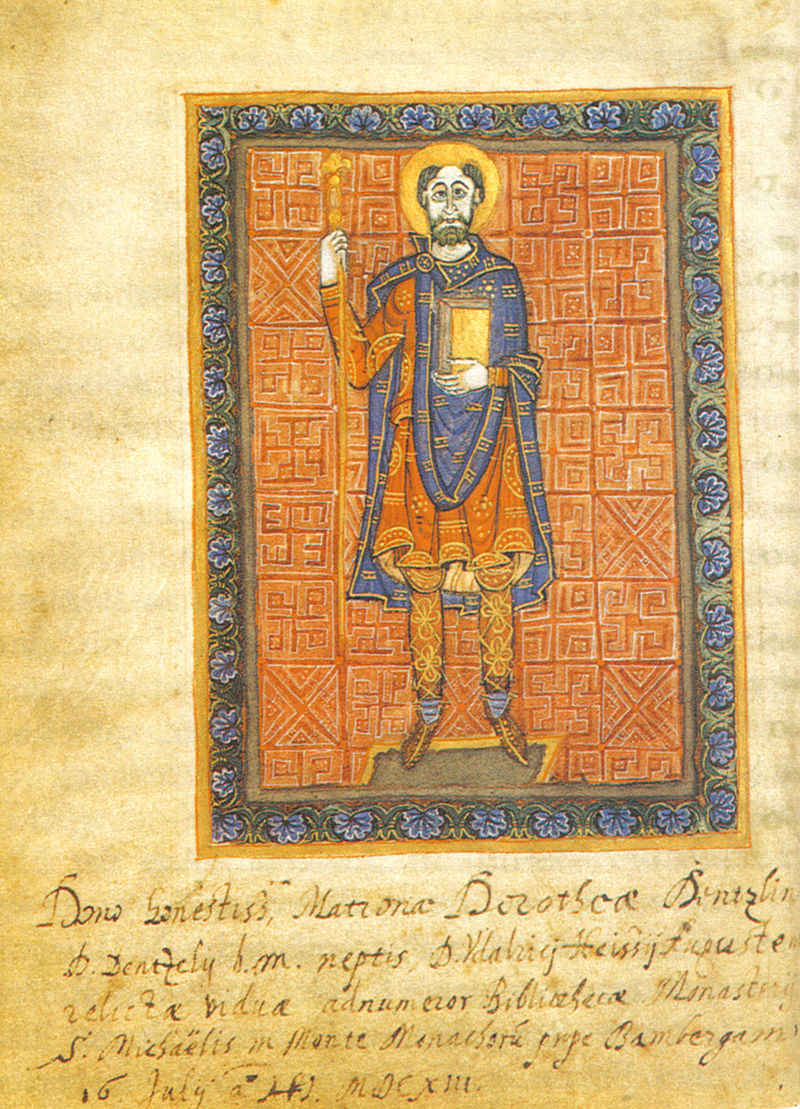 Dono honestiss, Matronæ Dorotheæ Dentzlin
D. Dentzely b.m. neptis, D. Vdalricj Heissij
relictæ viduæ adnumeror Bibliothecæ Monasterij
S. Michaëlis in Monte Monachorū prope Bambergam
16 July MDCXIII.